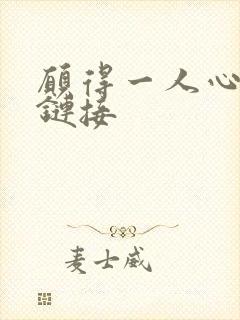 願得一人心
鏈接
麦士威